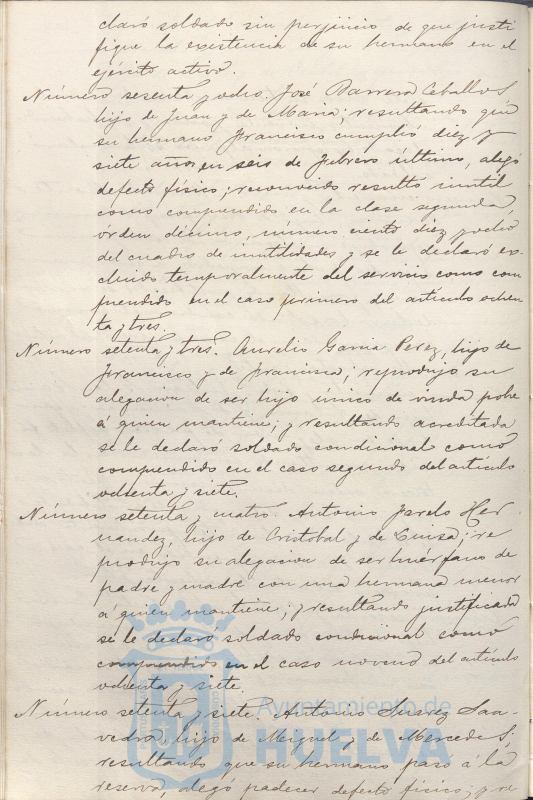 claró soldado sin perjuicio de que justi
fique la existencia de su hermano en el
ejército activo.
Número sesenta y ocho. José Barrera Ceballos,
hijo de Juan y de Maria; resultando que
su hermano Francisco cumplió diez y
siete años en seis de Febrero último, alegó
defecto físico; reconocido resultó inutil
como comprendido en la clase segunda,
órden décimo, número ciento diez y ocho
del cuadro de inutilidades y se le declaró ex-
cluido temporalmente del servicio como com
prendido en el caso primero del artículo ochen
ta y tres.
Número setenta y tres. Aurelio Garcia Perez, hijo de
Francisco y de Francisca; reprodujo su
alegacion de ser hijo único de viuda pobre
á quien mantiene; y resultando acreditada
se le declaró soldado condicional como
comprendido en el caso segundo del artículo
ochenta y siete.
Número setenta y cuatro. Antonio Her
nandez, hijo de Cristobal y de Luisa; re
produjo su alegacion de ser huérfano de
padre y madre con una hermana menor
á quien mantiene; y resultando justificada
se le declaró soldado condicional como
comprendido en el caso noveno del artículo
ochenta y siete.
Número setenta y siete. Antonio Suarez Saa-
vedra, hijo de Miguel y de Mercedes;
resultando que su hermano pasó á la
reserva, alegó padecer defecto físico; y re
Ayuntamiento de
HUELVA